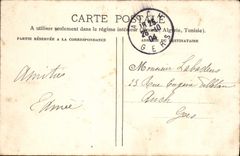 CARTE POSTALE
A utiliser seulement dans le régime intérieur (Algérie, Tunisie).
PARTIE RÉSERVÉE A LA CORRESPONDANCE
AUCH
GERS
Amitiés
Edmée
Monsieur Labadens
23 Rue Eugène
Auch
Gers